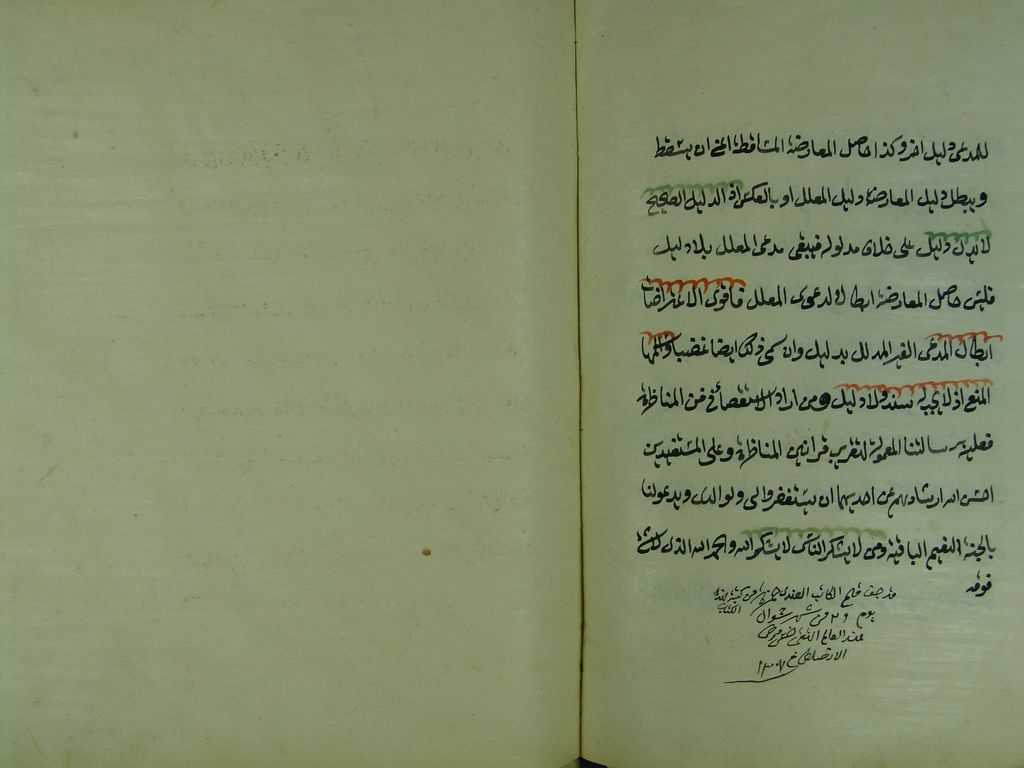 للمدعى دليل اخر وكذا حاصل المعارضة المساقطة اعنى ان يسقط
ويبطل دليل المعارضة دليل المعلل او بالعكس اذ الدليل الصحيح
لا يدل دليل على خلاف مدلوله فيبقى مدعى المعلل بلا دليل
فليس حاصل المعارضة ابطالا لدعوى المعلل فاقوى الاعتراضات
ابطال المدعى الغير المدلل بدليل وان سمى ذلك ايضا غصبا و
المنع اذ لا سند ولا دليل ومن اراد الاستقصاء فى فن المناظرة
فعليه رسالتنا المعمولة لتقرير قوانين المناظرة وعلى المستفيدين
احسن الله ارشادهم عن احديهما ان يستغفروا لى ولوالدى ويدعو لنا
بالجنة النعيم الباقية ومن لا يشكر الناس لا يشكر الله والحمد لله الذى
قد جف قلم الكاتب من كتبة هذا الكتاب
يوم من شهر شوال
عند العالم